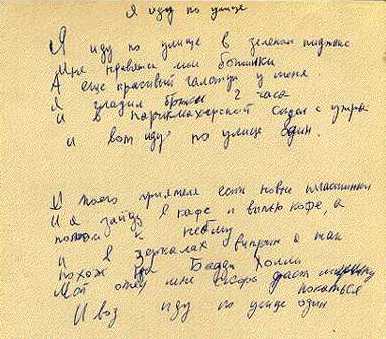 Я иду по улице
Я иду по улице в зеленом пиджаке
Мне нравятся мои ботинки
А еще красивый галстук у меня
Я гладил брюки 2 часа
И в парикмахерской сидел с утра
И вот иду по улице один.
У моего приятеля есть новые пластинки
И я зайду в кафе и выпью кофе, а
потом к нему
И в зеркалах витрин я так
похож на Бадди Холли
Мой отец мне скоро даст машину
покататься
И воз иду по улице один